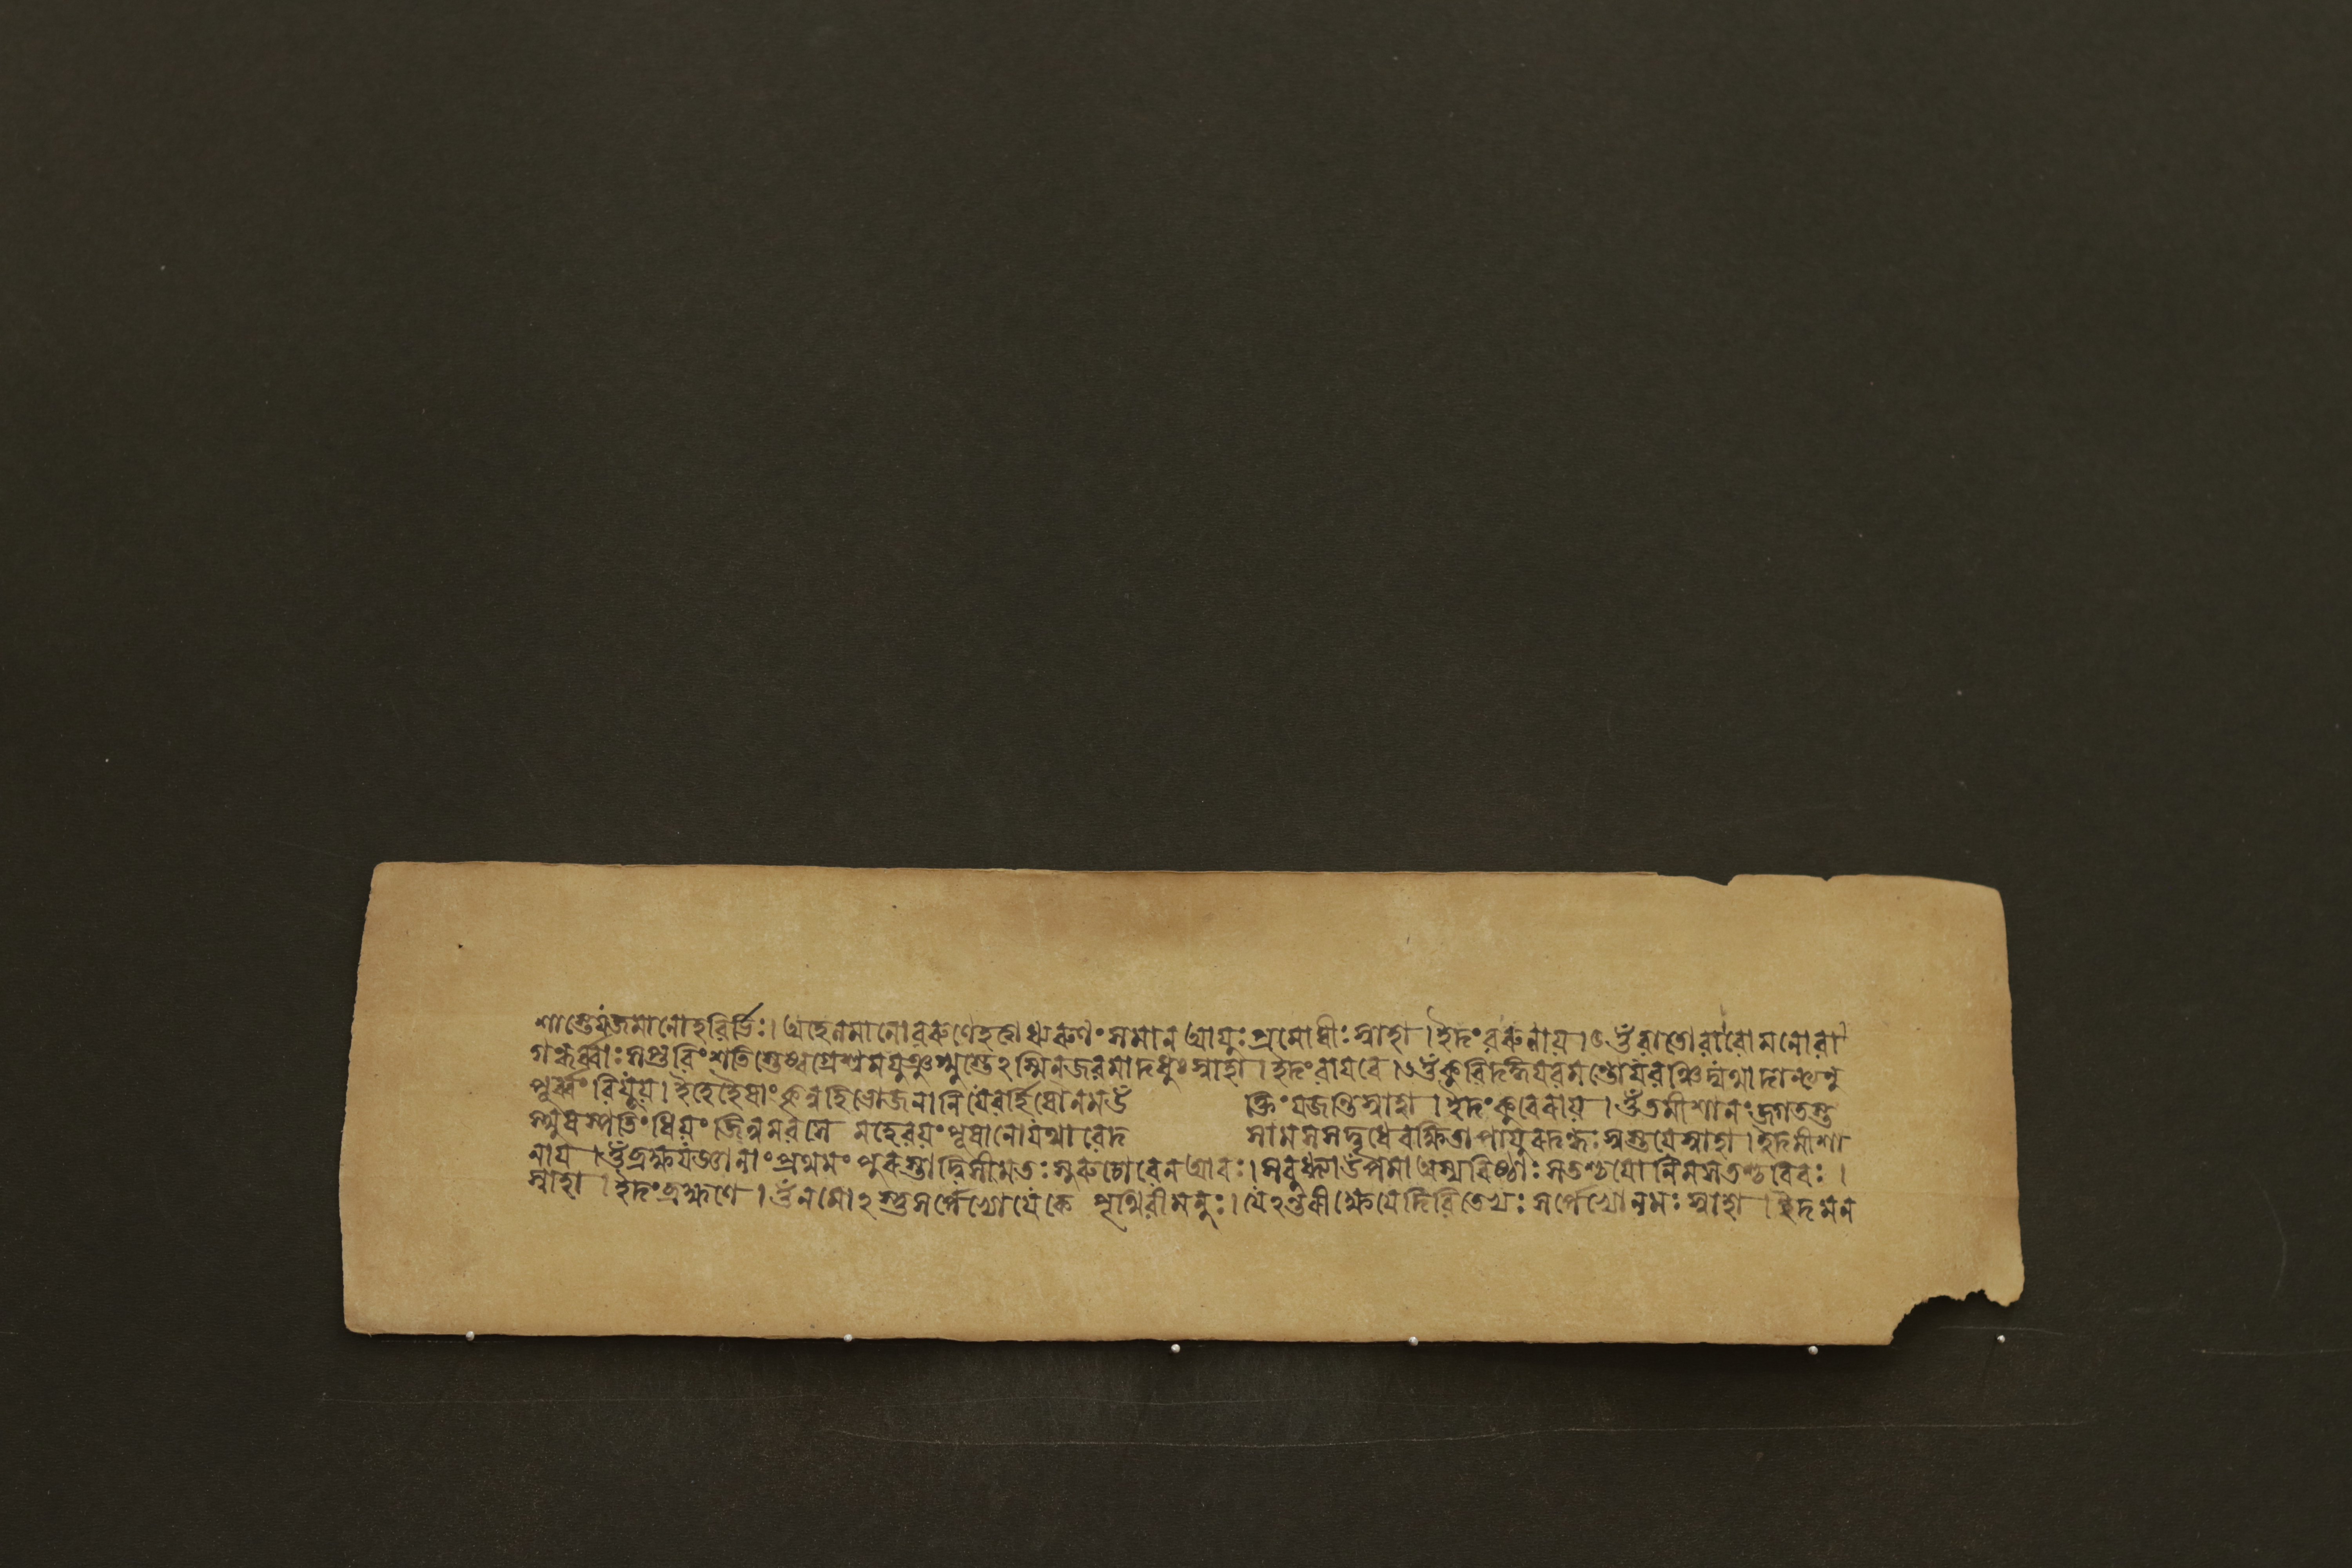 শাস্তেযজমানোহবির্ভিঃ। অহেলমানোবরুণেহবোধ্যুরুশংসমানআযুঃপ্রমোষীঃস্বাহা। ইদংবরুনায়। ওঁবাতোবাবোমনোবা
গন্ধর্ব্বাঃসপ্তবিংশতিস্তেঅগ্রেশ্বমযুঞ্জংস্তেঽস্মিনজবমাদধুঃস্বাহা। ইদংবাযবে। ওঁকুবিদঙ্গযবমন্তোযবঞ্চিদ্যথাদান্ত্যনু
পূর্ব্বংবিযূয়। ইহেহৈষাংকৃনুহিভোজনানিযেবর্হিষোনমউ ক্তিংযজন্তিস্বাহা। ইদংকুবেরায়। ওঁতমীশানংজগতস্ত
স্থুষস্পতিংধিয়ংজিন্বমবসে মহেবয়ংপূষানোযথাবেদ সামসদ্বৃধেরক্ষিতাপাযুরদব্ধঃস্বস্তযেস্বাহা। ইদমীশা
নায। ওঁব্রহ্মযজ্ঞানাংপ্রথমংপুরস্তাদ্বিসীমতঃসুরুচোবেনআবঃ। সবুধ্ন্যাউপমাঅস্যবিষ্ঠাঃসতশ্চযোনিমসতশ্চবিবঃ।
স্বাহা। ইদংব্রহ্মণে। ওঁনমোঽস্তুসর্পেভ্যোযেকে পৃথিবীমনুঃ। যেঽন্তরীক্ষেযেদিবিতেভ্যঃসর্পেভ্যোনমঃস্বাহা। ইদমন